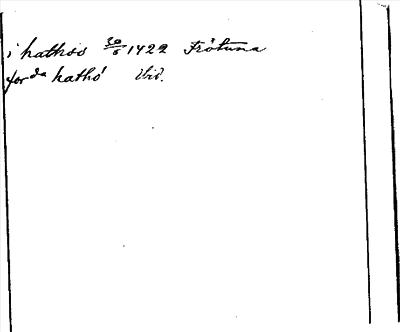 i hathøs 20/6 1422 Frötuna
for da hathó ibid.